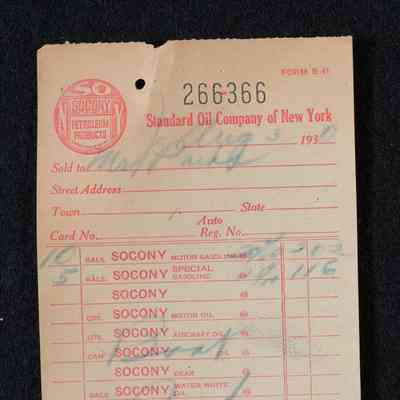 FORM B-41
SO
SOCONY
PETROLEUM
PRODUCTS
266366
Standard Oil Company of New York
Aug 3 193
Sold to
Street Address
Town State
Card No. Auto Reg. No.
10 GALS. SOCONY MOTOR GASOLINE @
5 GALS. SOCONY SPECIAL GASOLINE @ 116
SOCONY @
QTS. SOCONY MOTOR OIL @
QTS. SOCONY AIRCRAFT OIL @
CAN OIL @
SOCONY GEAR @
GALS. SOCONY WATER WHITE @